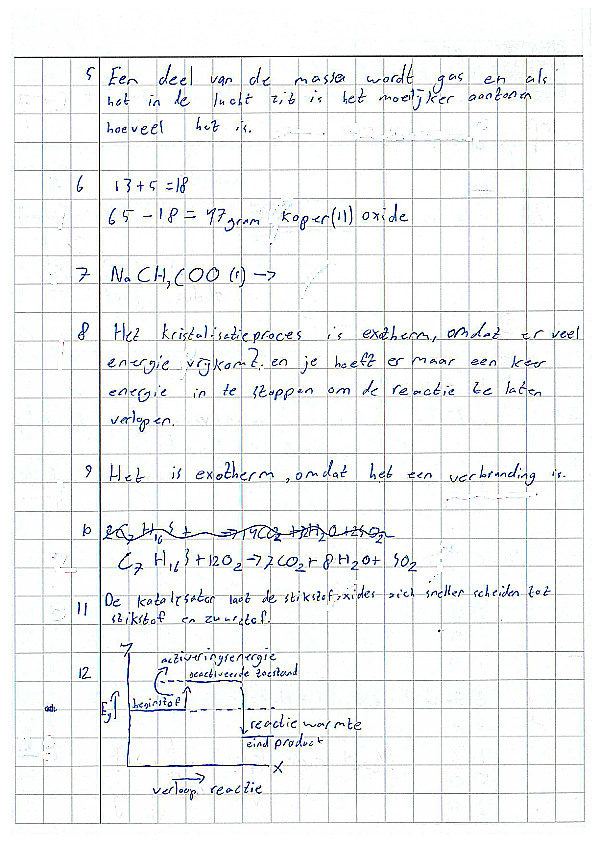 5 Een deel van de massa wordt gas en als
het in de lucht zit is het moeilijker aantonen
hoeveel het is.
6 13+5=18
65-18=47gram koper(II) oxide
7 NaCH3COO (s) →
8 Het kristalisatieproces is exotherm, omdat er veel
energie vrijkomt. en je hoeft er maar een keer
energie in te stoppen om de reactie te laten
verlopen.
9 Het is exotherm, omdat het een verbranding is.
10
C7 H16S + 12O2 → 7CO2 + 8H2O + SO2
11 De katalysator laat de stikstofoxides zich sneller scheiden tot
stikstof en zuurstof.
12
activeringsenergie
geactiveerde toestand
beginstof
E
reactie warmte
eind product
x
verloop reactie